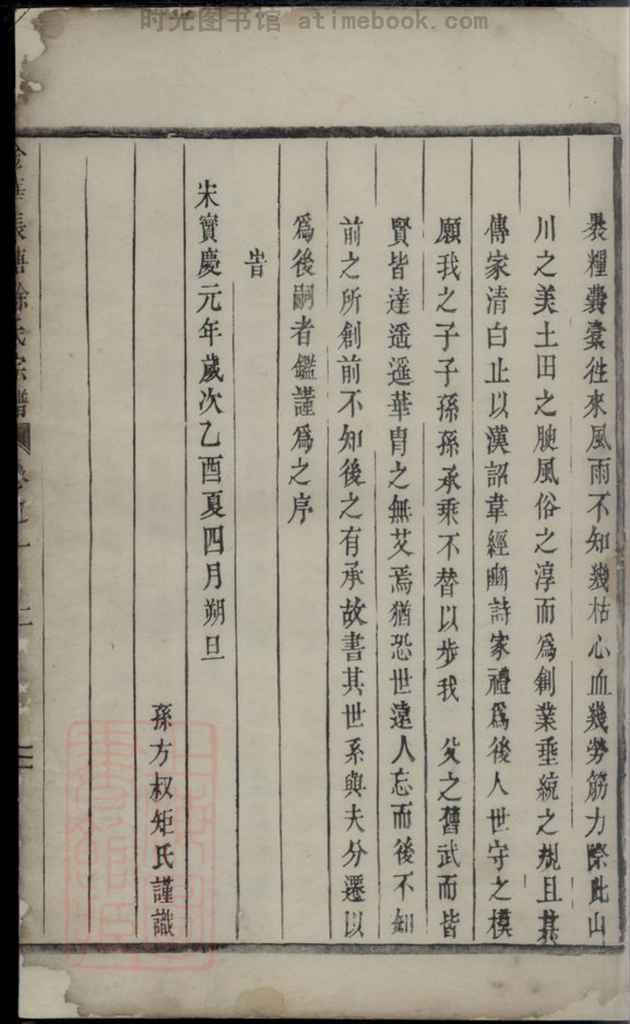 时光图书馆 atimebook.com
裹糧囊橐徃來風雨不知幾枯心血幾勞筋力際此山
川之美土田之腴風俗之淳而爲創業垂統之規且其
傳家清白止以漢詔韋經豳詩家禮爲後人世守之模
願我之子子孫孫承乘不替以步我 父之舊武而皆
賢皆達遥遥華胄之無艾焉猶恐世遠人忘而後不知
前之所創前不知後之有承故書其世系與夫分遷以
爲後嗣者鑑謹爲之序
旹
宋寳慶元年歲次乙酉夏四月朔旦
孫方叔矩氏謹識
徐氏宗譜